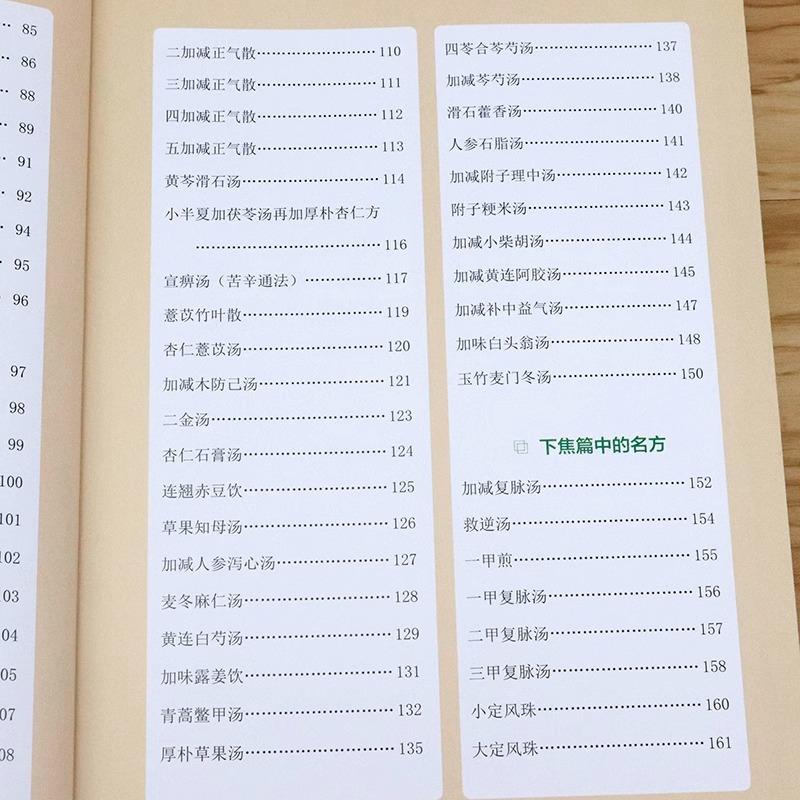 85
86
88
89
91
92
94
95
96
97
98
99
100
101
102
103
104
105
107
108
二加减正气散……………………110
三加减正气散……………………111
四加减正气散……………………112
五加减正气散……………………113
黄芩滑石汤………………………114
小半夏加茯苓汤再加厚朴杏仁方
……………………………………116
宣痹汤（苦辛通法）……………117
薏苡竹叶散………………………119
杏仁薏苡汤………………………120
加减木防己汤……………………121
二金汤……………………………123
杏仁石膏汤………………………124
连翘赤豆饮………………………125
草果知母汤………………………126
加减人参泻心汤…………………127
麦冬麻仁汤………………………128
黄连白芍汤………………………129
加味露姜饮………………………131
青蒿鳖甲汤………………………132
厚朴草果汤………………………135
四苓合芩芍汤……………………137
加减芩芍汤………………………138
滑石藿香汤………………………140
人参石脂汤………………………141
加减附子理中汤…………………142
附子粳米汤………………………143
加减小柴胡汤……………………144
加减黄连阿胶汤…………………145
加减补中益气汤…………………147
加味白头翁汤……………………148
玉竹麦门冬汤……………………150
下焦篇中的名方
加减复脉汤………………………152
救逆汤……………………………154
一甲煎……………………………155
一甲复脉汤………………………156
二甲复脉汤………………………157
三甲复脉汤………………………158
小定风珠…………………………160
大定风珠…………………………161